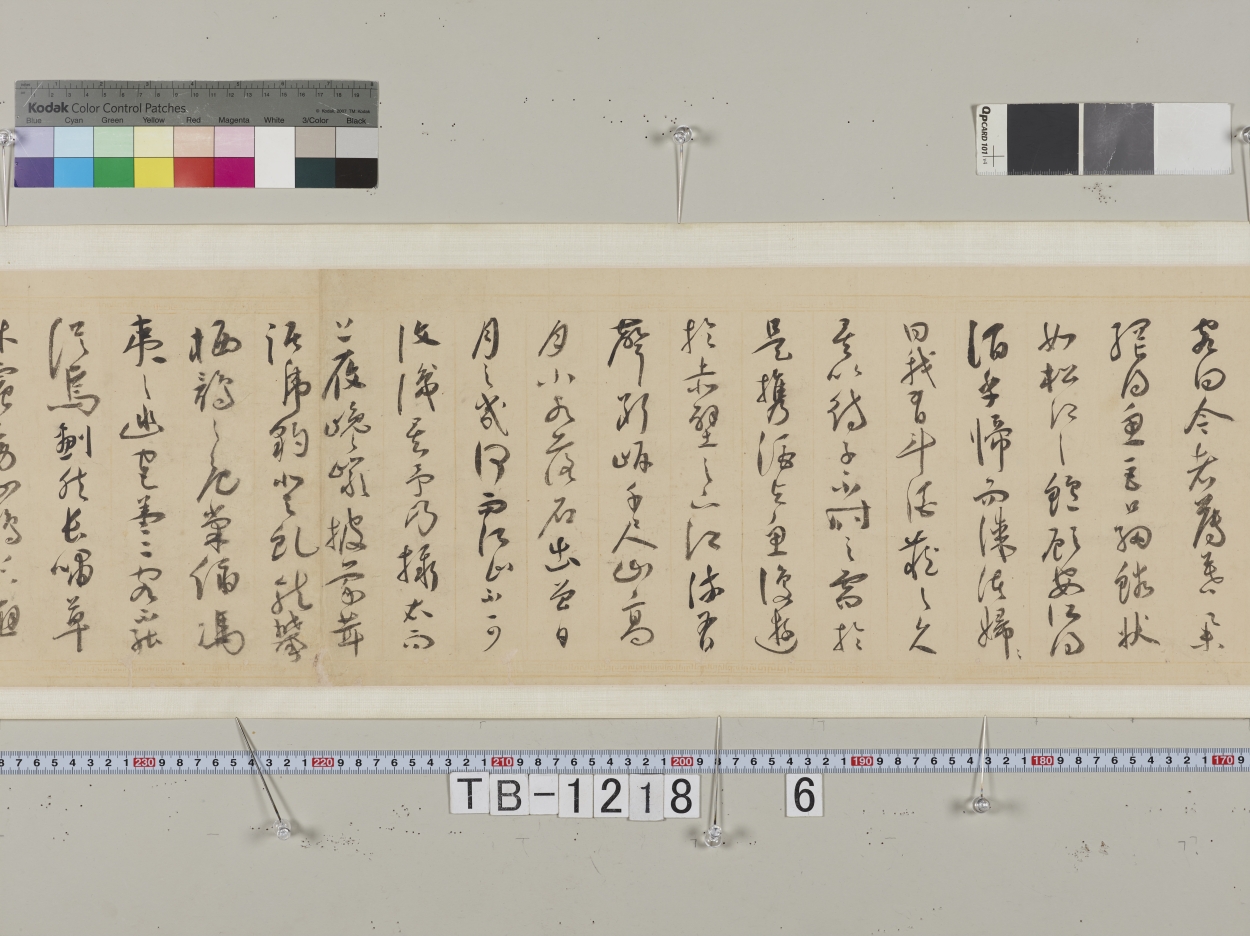 Kodak Color Control Patches
Blue Cyan Green Yellow Red Magenta White 3/Color Black
QPCARD 101
客曰今者薄暮舉
網得魚巨口細鱗狀
如松江之鱸顧安所得
酒乎歸而謀諸婦〻
曰我有斗酒藏之久
矣以待子不時之需於
是攜酒與魚復遊
於赤壁之下江流有
聲斷岸千尺山高
月小水落石出曾日
月之幾何而江山不可
復識矣予乃攝衣而
上履巉巖披蒙茸
踞虎豹登虬龍攀
栖鶻之危巢俯馮
夷之幽宮蓋二客不能
從焉劃然長嘯草
木震動山鳴谷應
TB-1218 6